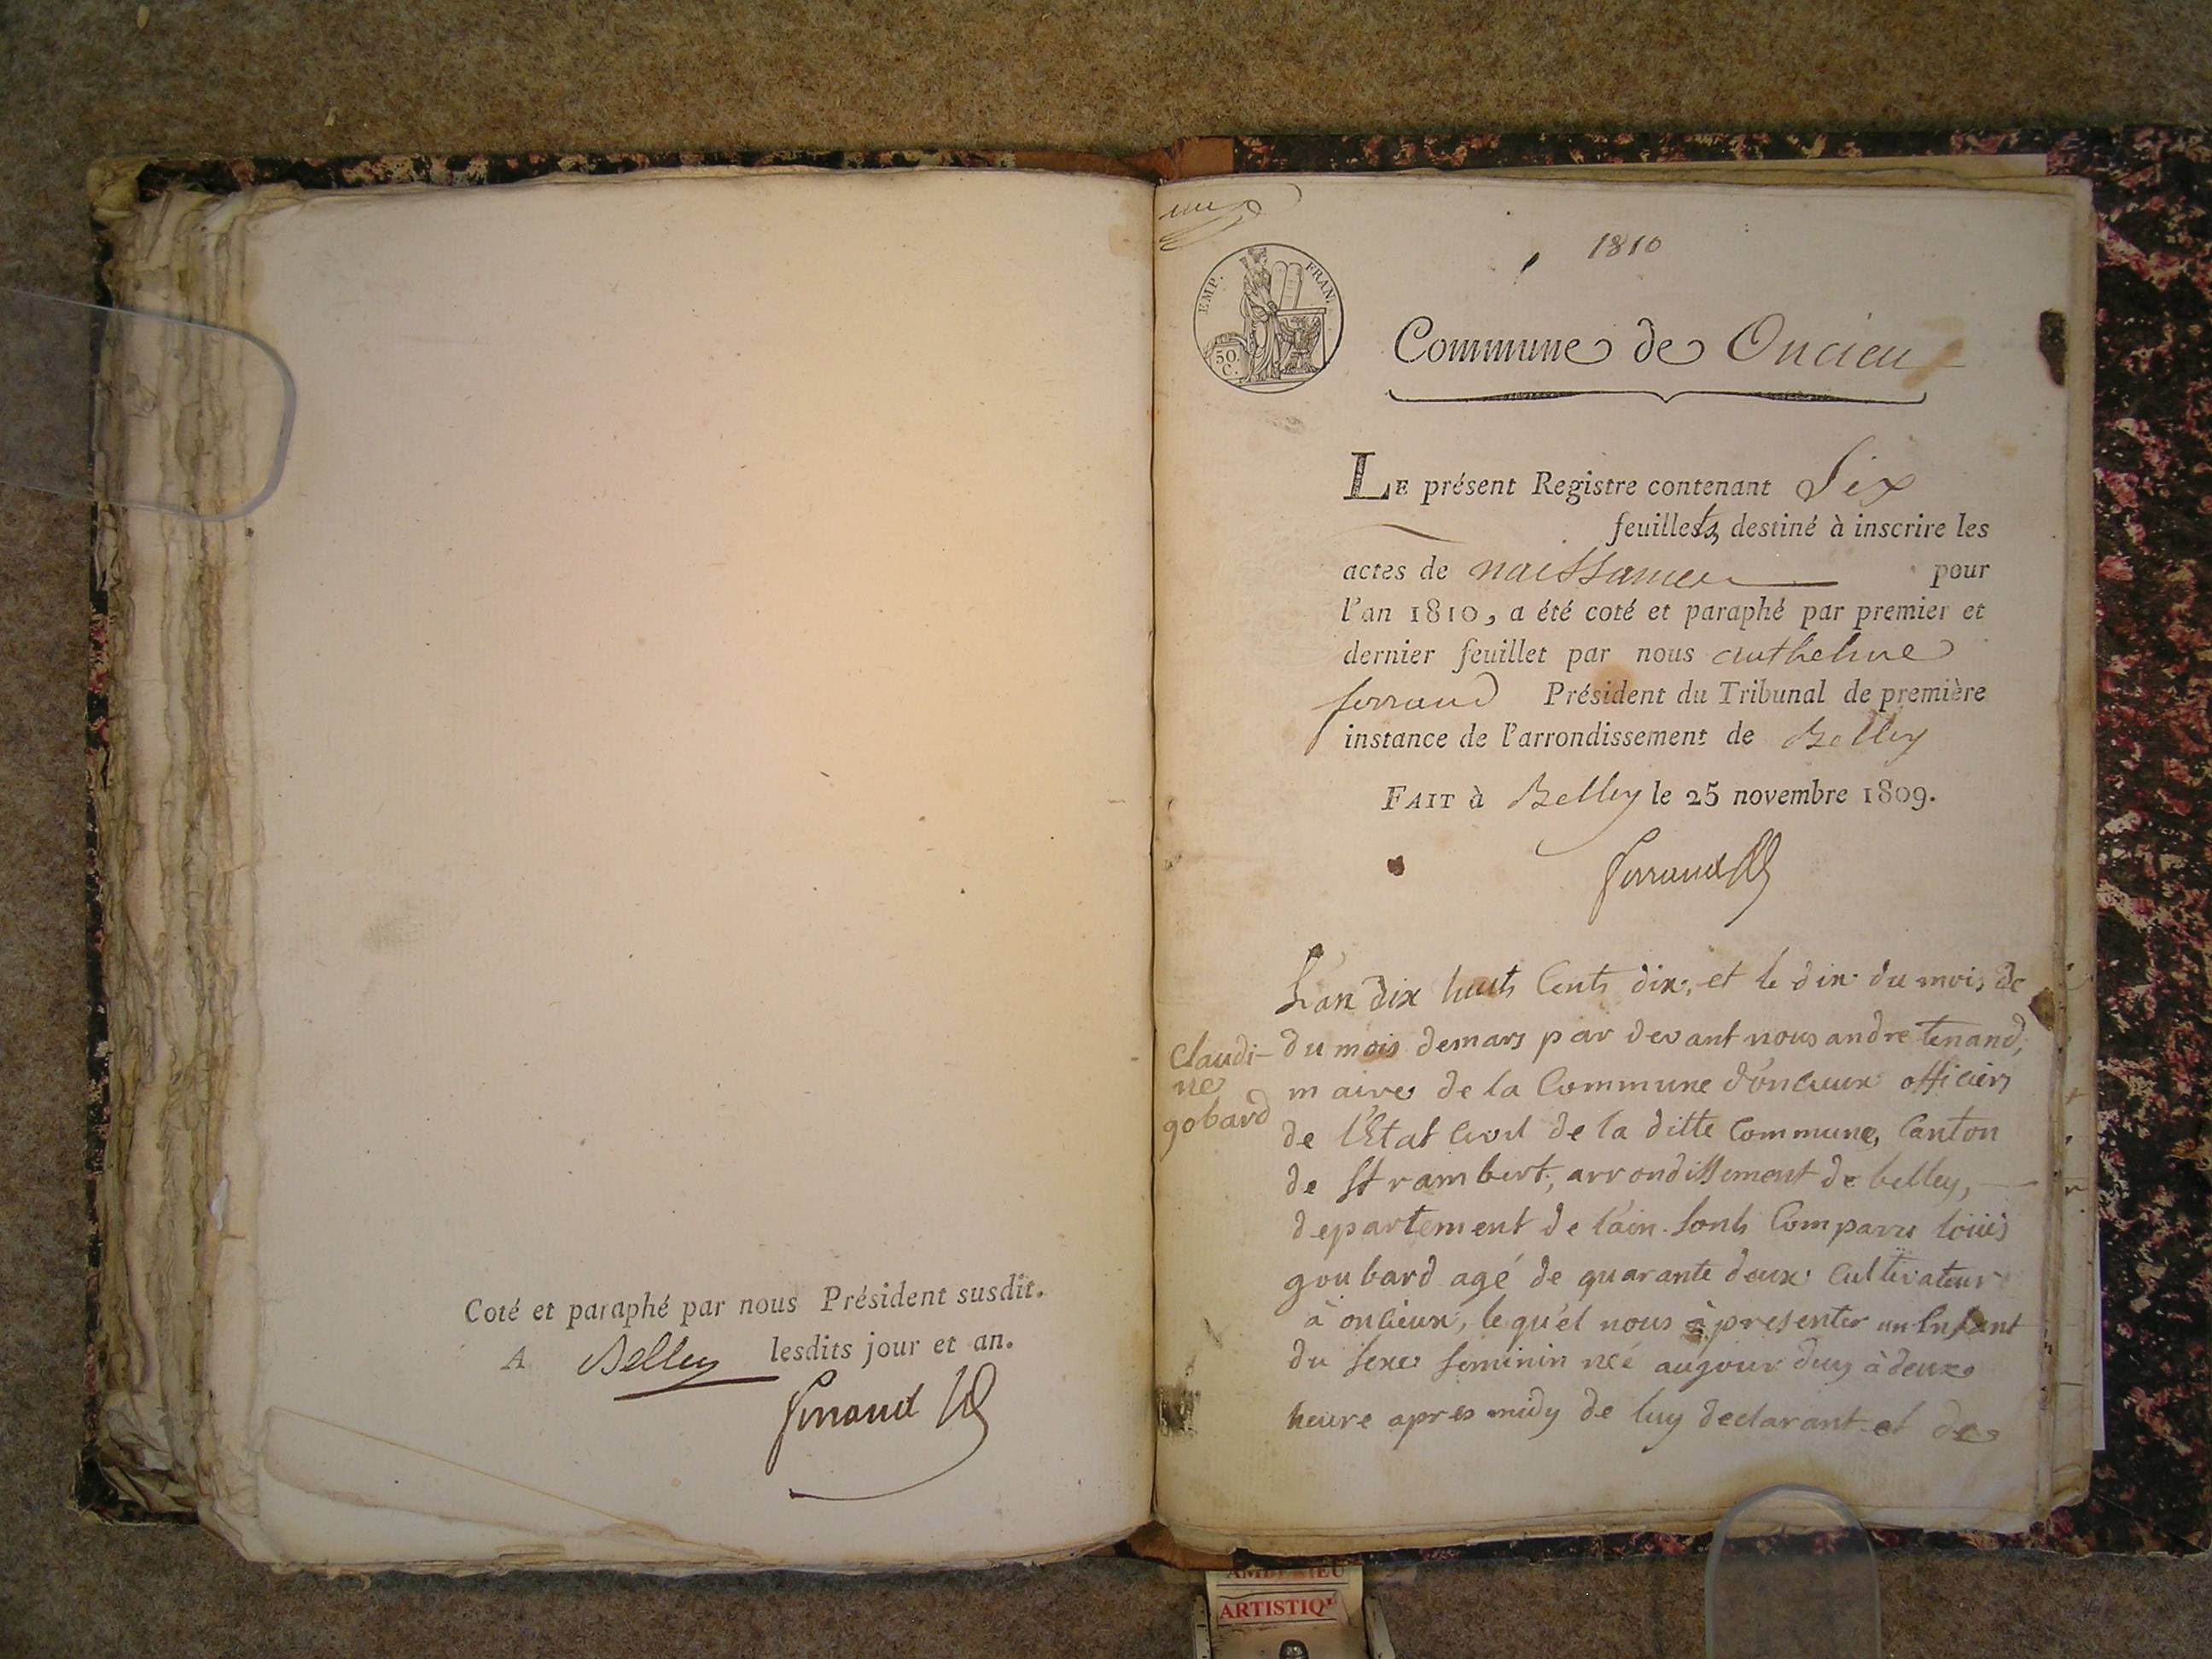 Coté et paraphé par nous Président susdit.
A Belley lesdits jour et an.
ferrand
1810
EMP. FRAN.
50.
C.
Commune de Oncieu
LE présent Registre contenant Six
feuillets, destiné à inscrire les
actes de naissances pour
l'an 1810, a été coté et paraphé par premier et
dernier feuillet par nous anthelme
ferrand Président du Tribunal de première
instance de l'arrondissement de Belley
FAIT à Belley le 25 novembre 1809.
ferrand
Claudi-
ne
gobard
L'an dix huits Cents dix, et le dix du mois de
du mois demars par devant nous andre tenand,
maire de la Commune d'oncieux officiers
de l'Etat Civil de la ditte Commune, Canton
de St rambert, arrondissement de belley,
departement de l'ain. sonts Comparu loüis
goubard agé de quarante deux Cultivateur
à oncieux, le quél nous à presenter un Enfant
du sexe feminin néé aujour duy à deux
heure apres midy de luy declarant et de
AMBERIEU
ARTISTIQ